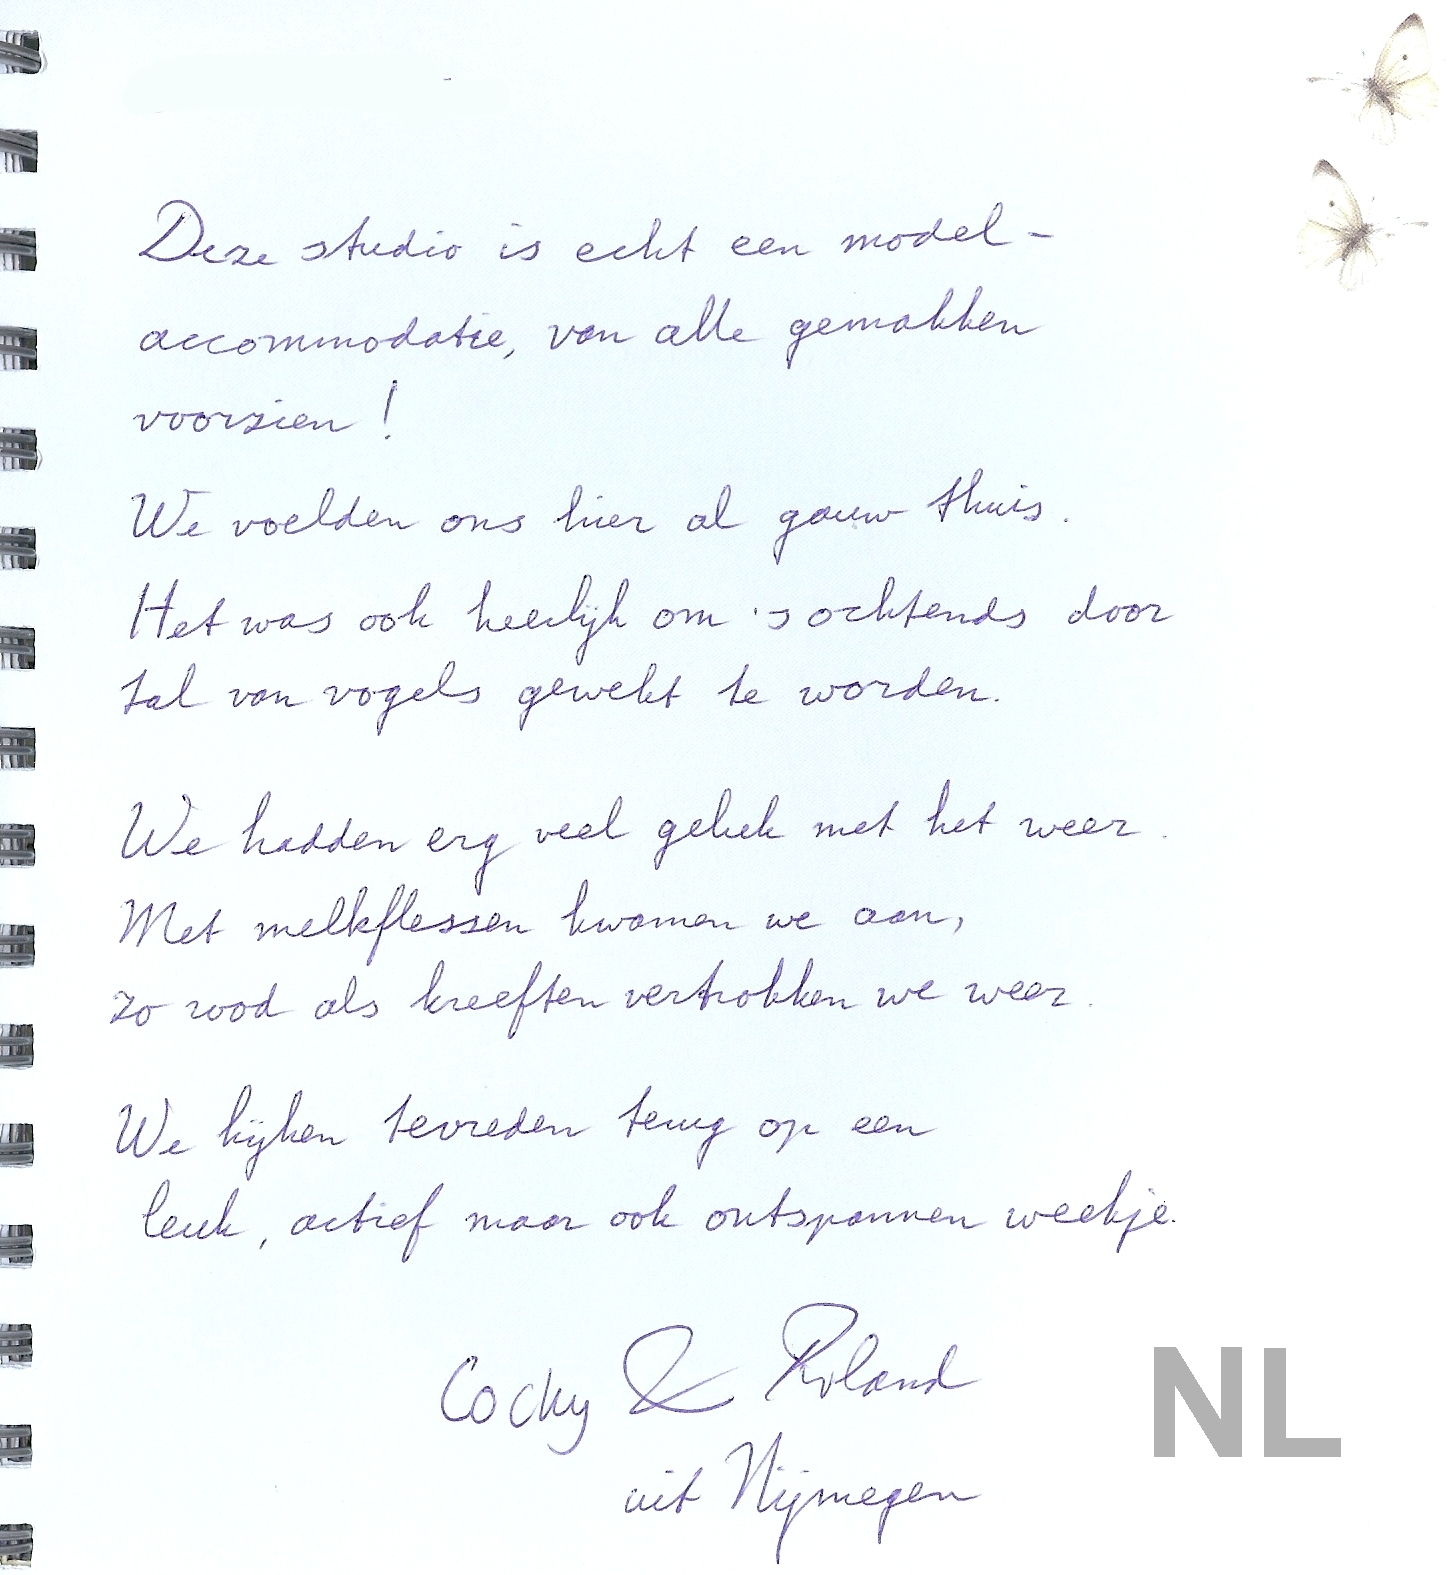 Deze studio is echt een model-
accommodatie, van alle gemakken
voorzien!
We voelden ons hier al gauw thuis.
Het was ook heerlijk om 's ochtends door
tal van vogels gewekt te worden.
We hadden erg veel geluk met het weer.
Met melkflessen kwamen we aan,
zo rood als kreeften vertrokken we weer.
We kijken tevreden terug op een
leuk, actief maar ook ontspannen weekje.
Cocky & Roland
uit Nijmegen
NL